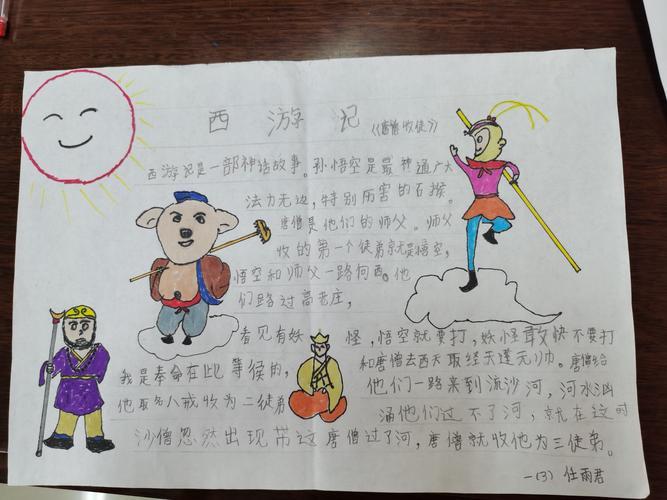 西游记 《唐僧收徒》
西游记是一部神话故事。孙悟空是最神通广大
法力无边，特别厉害的石猴。
唐僧是他们的师父。师父
收的第一个徒弟就是悟空，
悟空和师父一路向西。他
们路过高老庄，
看见有妖怪，悟空就要打，妖怪敢快不要打
我是奉命在此等候的，和唐僧去西天取经天蓬元帅。唐僧给
他取名八戒收为二徒弟 他们一路来到流沙河，河水汹
涌他们过不了河，就在这时
沙僧忽然出现带这唐僧过了河，唐僧就收他为三徒弟。
一(3) 任雨君